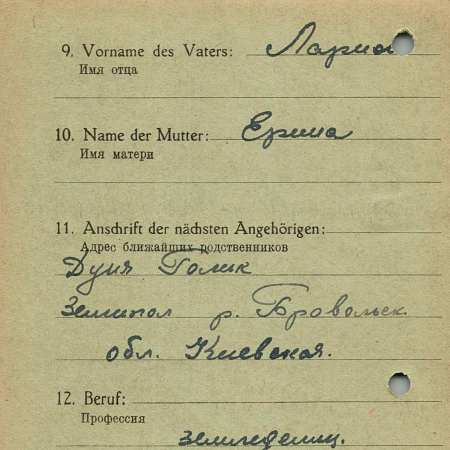 9. Vorname des Vaters: Ларио
Имя отца
10. Name der Mutter: Ерина
Имя матери
11. Anschrift der nächsten Angehörigen:
Адрес ближайших родственников
Дуня Голик
Земипол р. Бровольск
обл. Киевская.
12. Beruf:
Профессия
земледелиц.